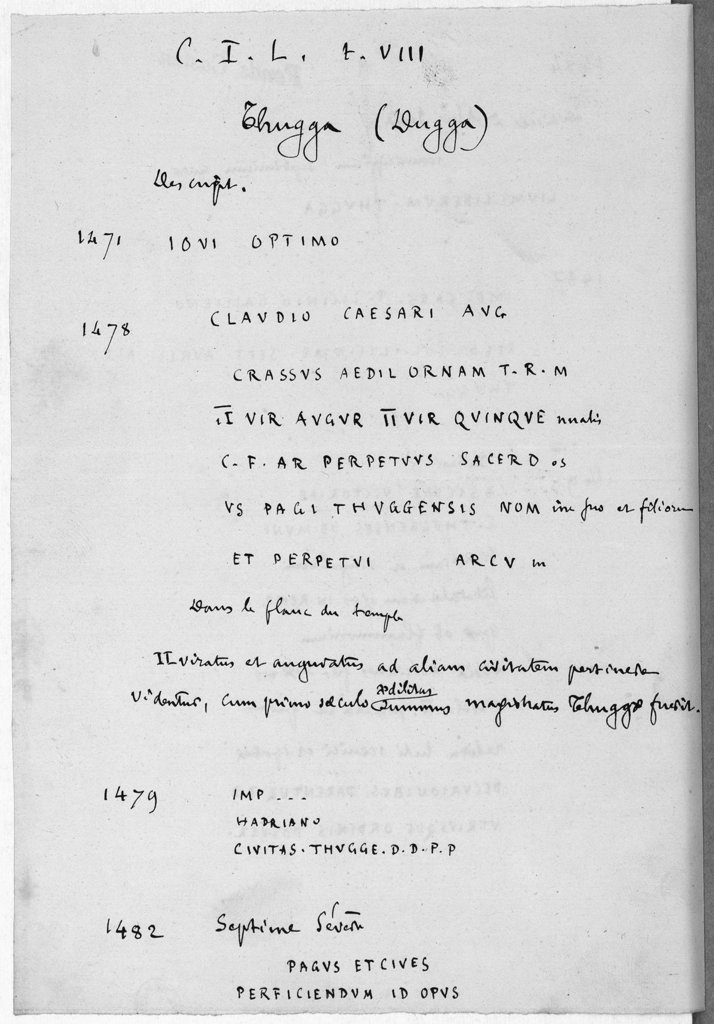 C. I. L. t. VIII
Thugga (Dugga)
Descript.
1471 IOVI OPTIMO
1478 CLAVDIO CAESARI AVG
CRASSVS AEDIL ORNAM T. R. M
II VIR AVGVR II VIR QVINQVE nnalis
C. F. AR PERPETVVS SACERD os
VS PAGI THVGGENSIS NOM ine suo et filiorum
ET PERPETVI ARCV m
Dans le flanc du temple
II viratus et auguratus ad aliam civitatem pertinere
videntur, cum primo saeculo aedilitas summus magistratus Thuggae fuerit.
1479 IMP ...
HADRIANO
CIVITAS. THVGGE. D. D. P. P
1482 Septime Sévère
PAGVS ET CIVES
PERFICIENDVM ID OPVS